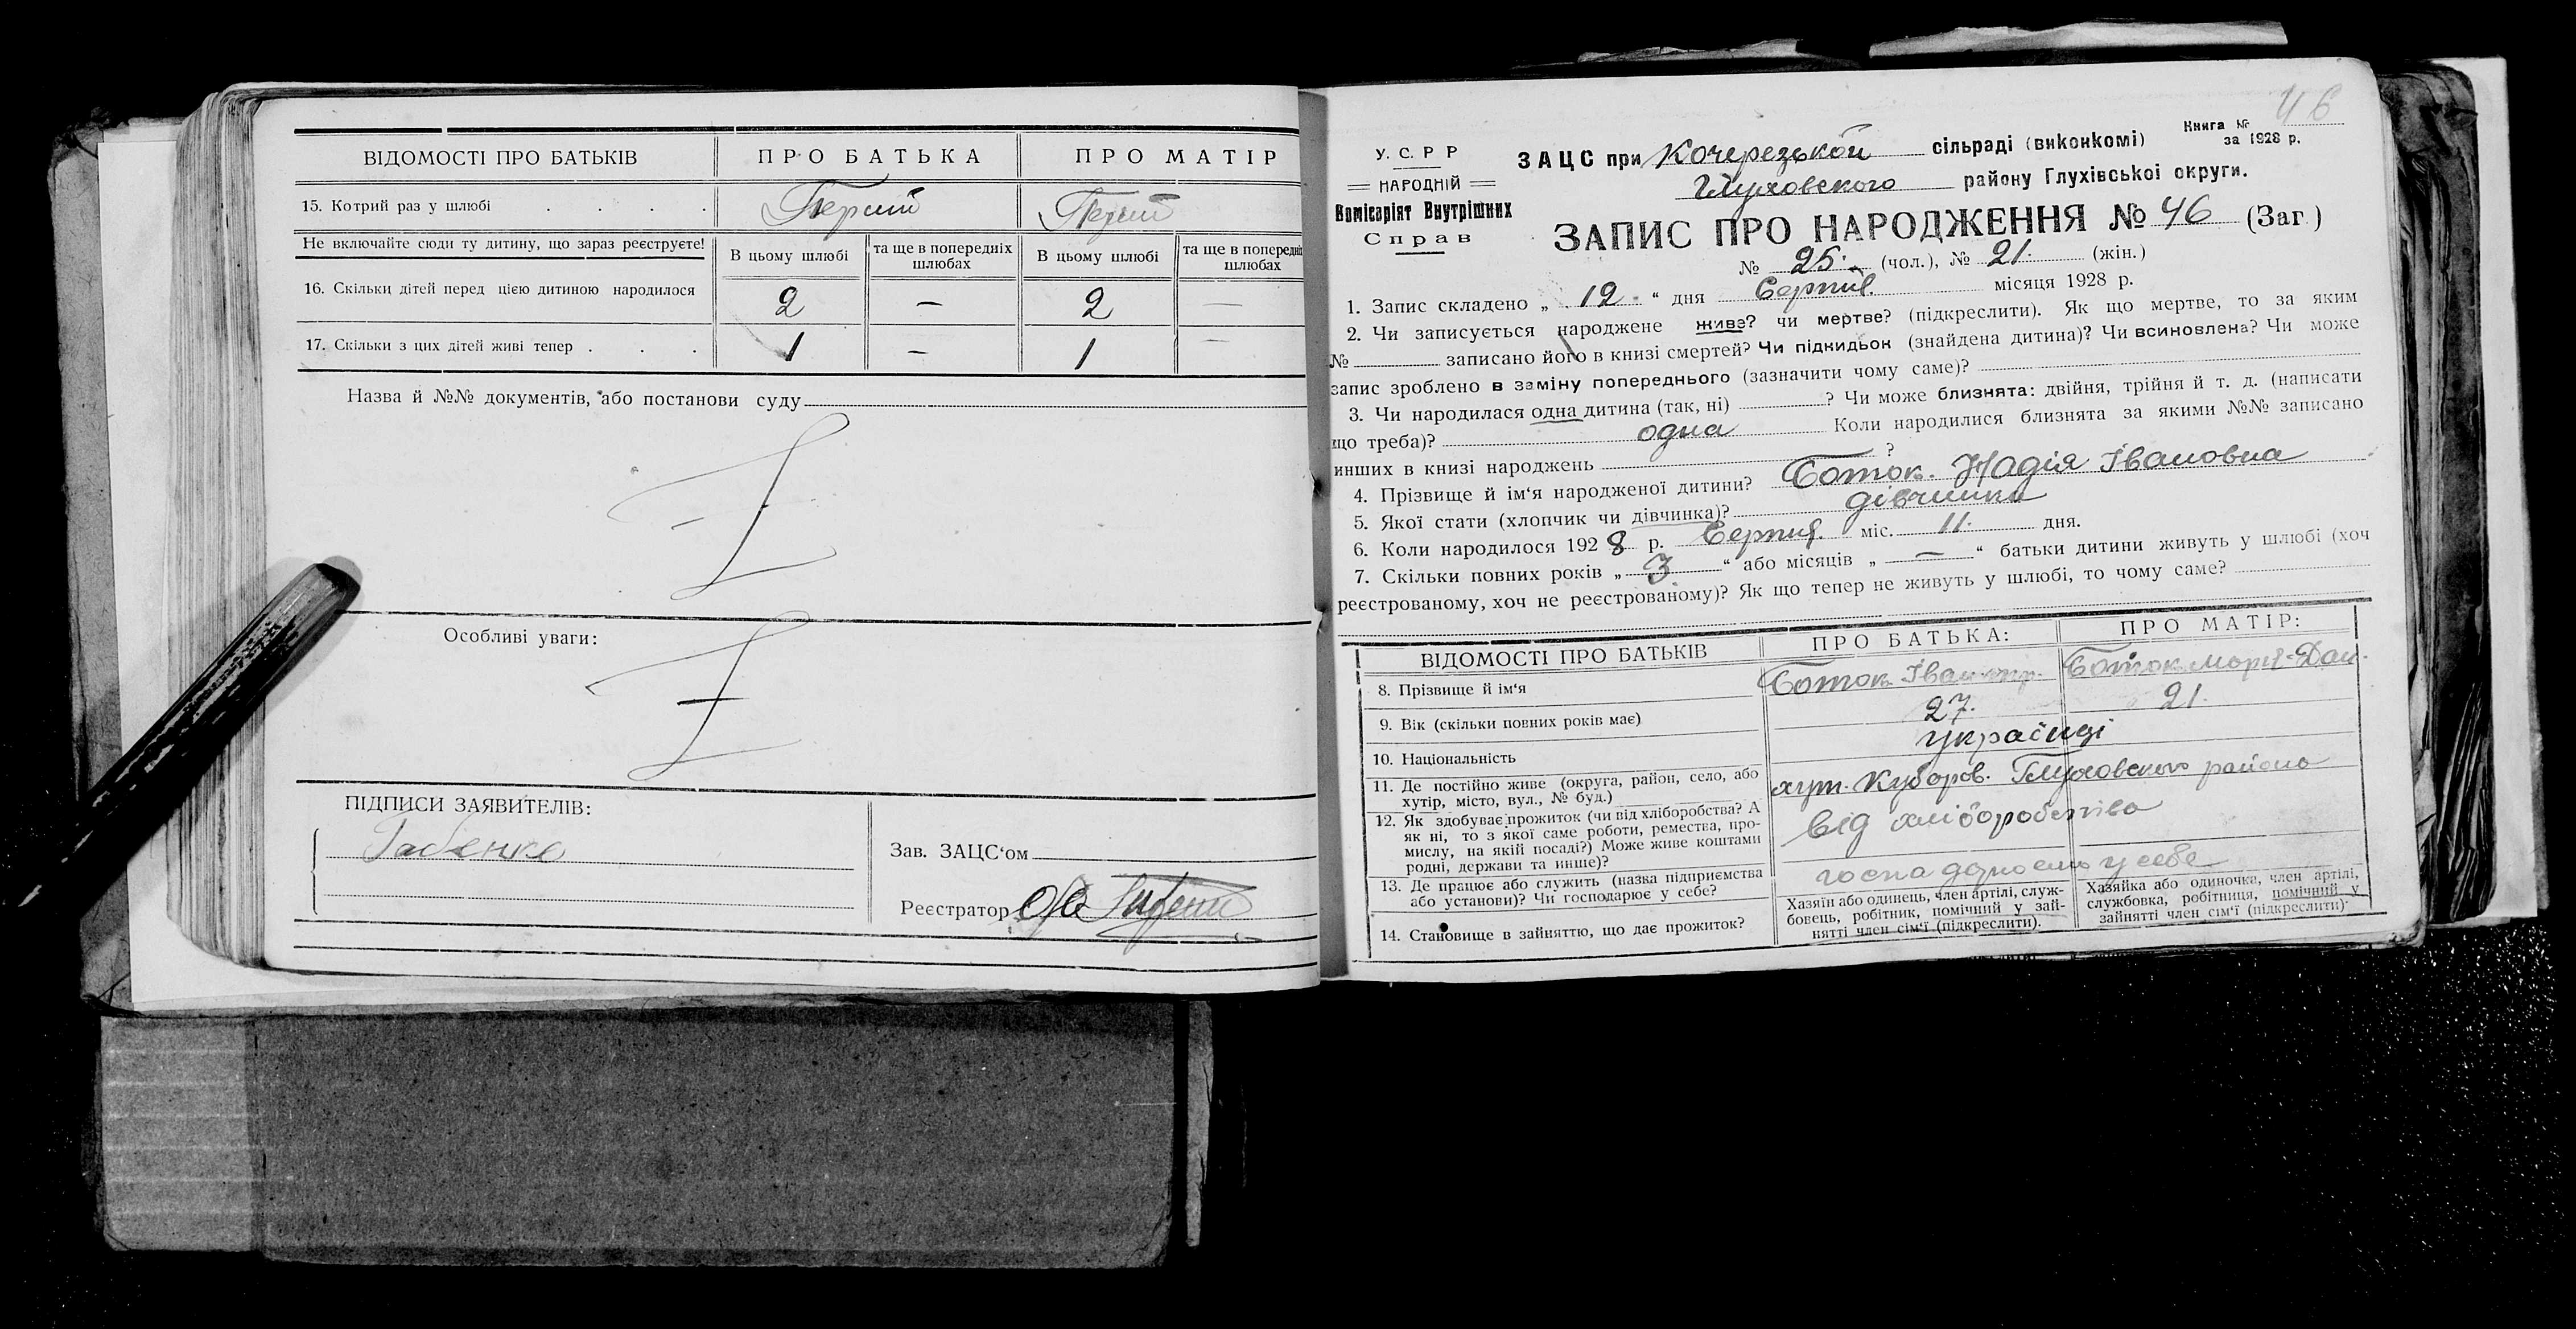 ВІДОМОСТІ ПРО БАТЬКІВ ПРО БАТЬКА ПРО МАТІР
15. Котрий раз у шлюбі . . . . Перший Перший
Не включайте сюди ту дитину, що зараз реєструєте! В цьому шлюбі та ще в попередніх шлюбах В цьому шлюбі та ще в попередніх шлюбах
16. Скільки дітей перед цією дитиною народилося 2 — 2 —
17. Скільки з цих дітей живі тепер . . . 1 — 1 —
Назва й №№ документів, або постанови суду
Особливі уваги:
ПІДПИСИ ЗАЯВИТЕЛІВ:
Зав. ЗАЦС'ом
Реєстратор
46
У. С. Р Р
НАРОДНІЙ
Комісаріят Внутрішних
Справ
Книга №
за 1928 р.
ЗАЦС при Кочерезькой сільраді (виконкомі)
Глуховского району Глухівської округи.
ЗАПИС ПРО НАРОДЖЕННЯ № 46 (Заг.)
№ 25. (чол.), № 21. (жін.)
1. Запис складено „ 12 " дня Серпня місяця 1928 р.
2. Чи записується народжене живе? чи мертве? (підкреслити). Як що мертве, то за яким
№ записано його в книзі смертей? Чи підкидьок (знайдена дитина)? Чи всиновлена? Чи може
запис зроблено в заміну попереднього (зазначити чому саме)?
3. Чи народилася одна дитина (так, ні) ? Чи може близнята: двійня, трійня й т. д. (написати
що треба)? одна Коли народилися близнята за якими №№ записано
инших в книзі народжень ?
4. Прізвище й ім'я народженої дитини? Боток Надія Івановна
5. Якої стати (хлопчик чи дівчинка)? дівчинка
6. Коли народилося 1928 р. Серпня міс. 11. дня.
7. Скільки повних років „ 3 " або місяців „ — " батьки дитини живуть у шлюбі (хоч
реєстрованому, хоч не реєстрованому)? Як що тепер не живуть у шлюбі, то чому саме?
ВІДОМОСТІ ПРО БАТЬКІВ ПРО БАТЬКА: ПРО МАТІР:
8. Прізвище й ім'я Боток Іван Боток Марія
9. Вік (скільки повних років має) 27. 21.
10. Національність українці
11. Де постійно живе (округа, район, село, або
хутір, місто, вул., № буд.) хут. Глуховского района
12. Як здобуває прожиток (чи від хліборобства? А
як ні, то з якої саме роботи, ремества, про-
мислу, на якій посаді?) Може живе коштами
родні, держави та инше)? від хліборобства
13. Де працює або служить (назва підприємства
або установи)? Чи господарює у себе? у себе
14. Становище в зайняттю, що дає прожиток?
Хазяїн або одинець, член артілі, служ-
бовець, робітник, помічний у зай-
нятті член сім'ї (підкреслити).
Хазяйка або одиночка, член артілі,
службовка, робітниця, помічний у
зайнятті член сім'ї (підкреслити).